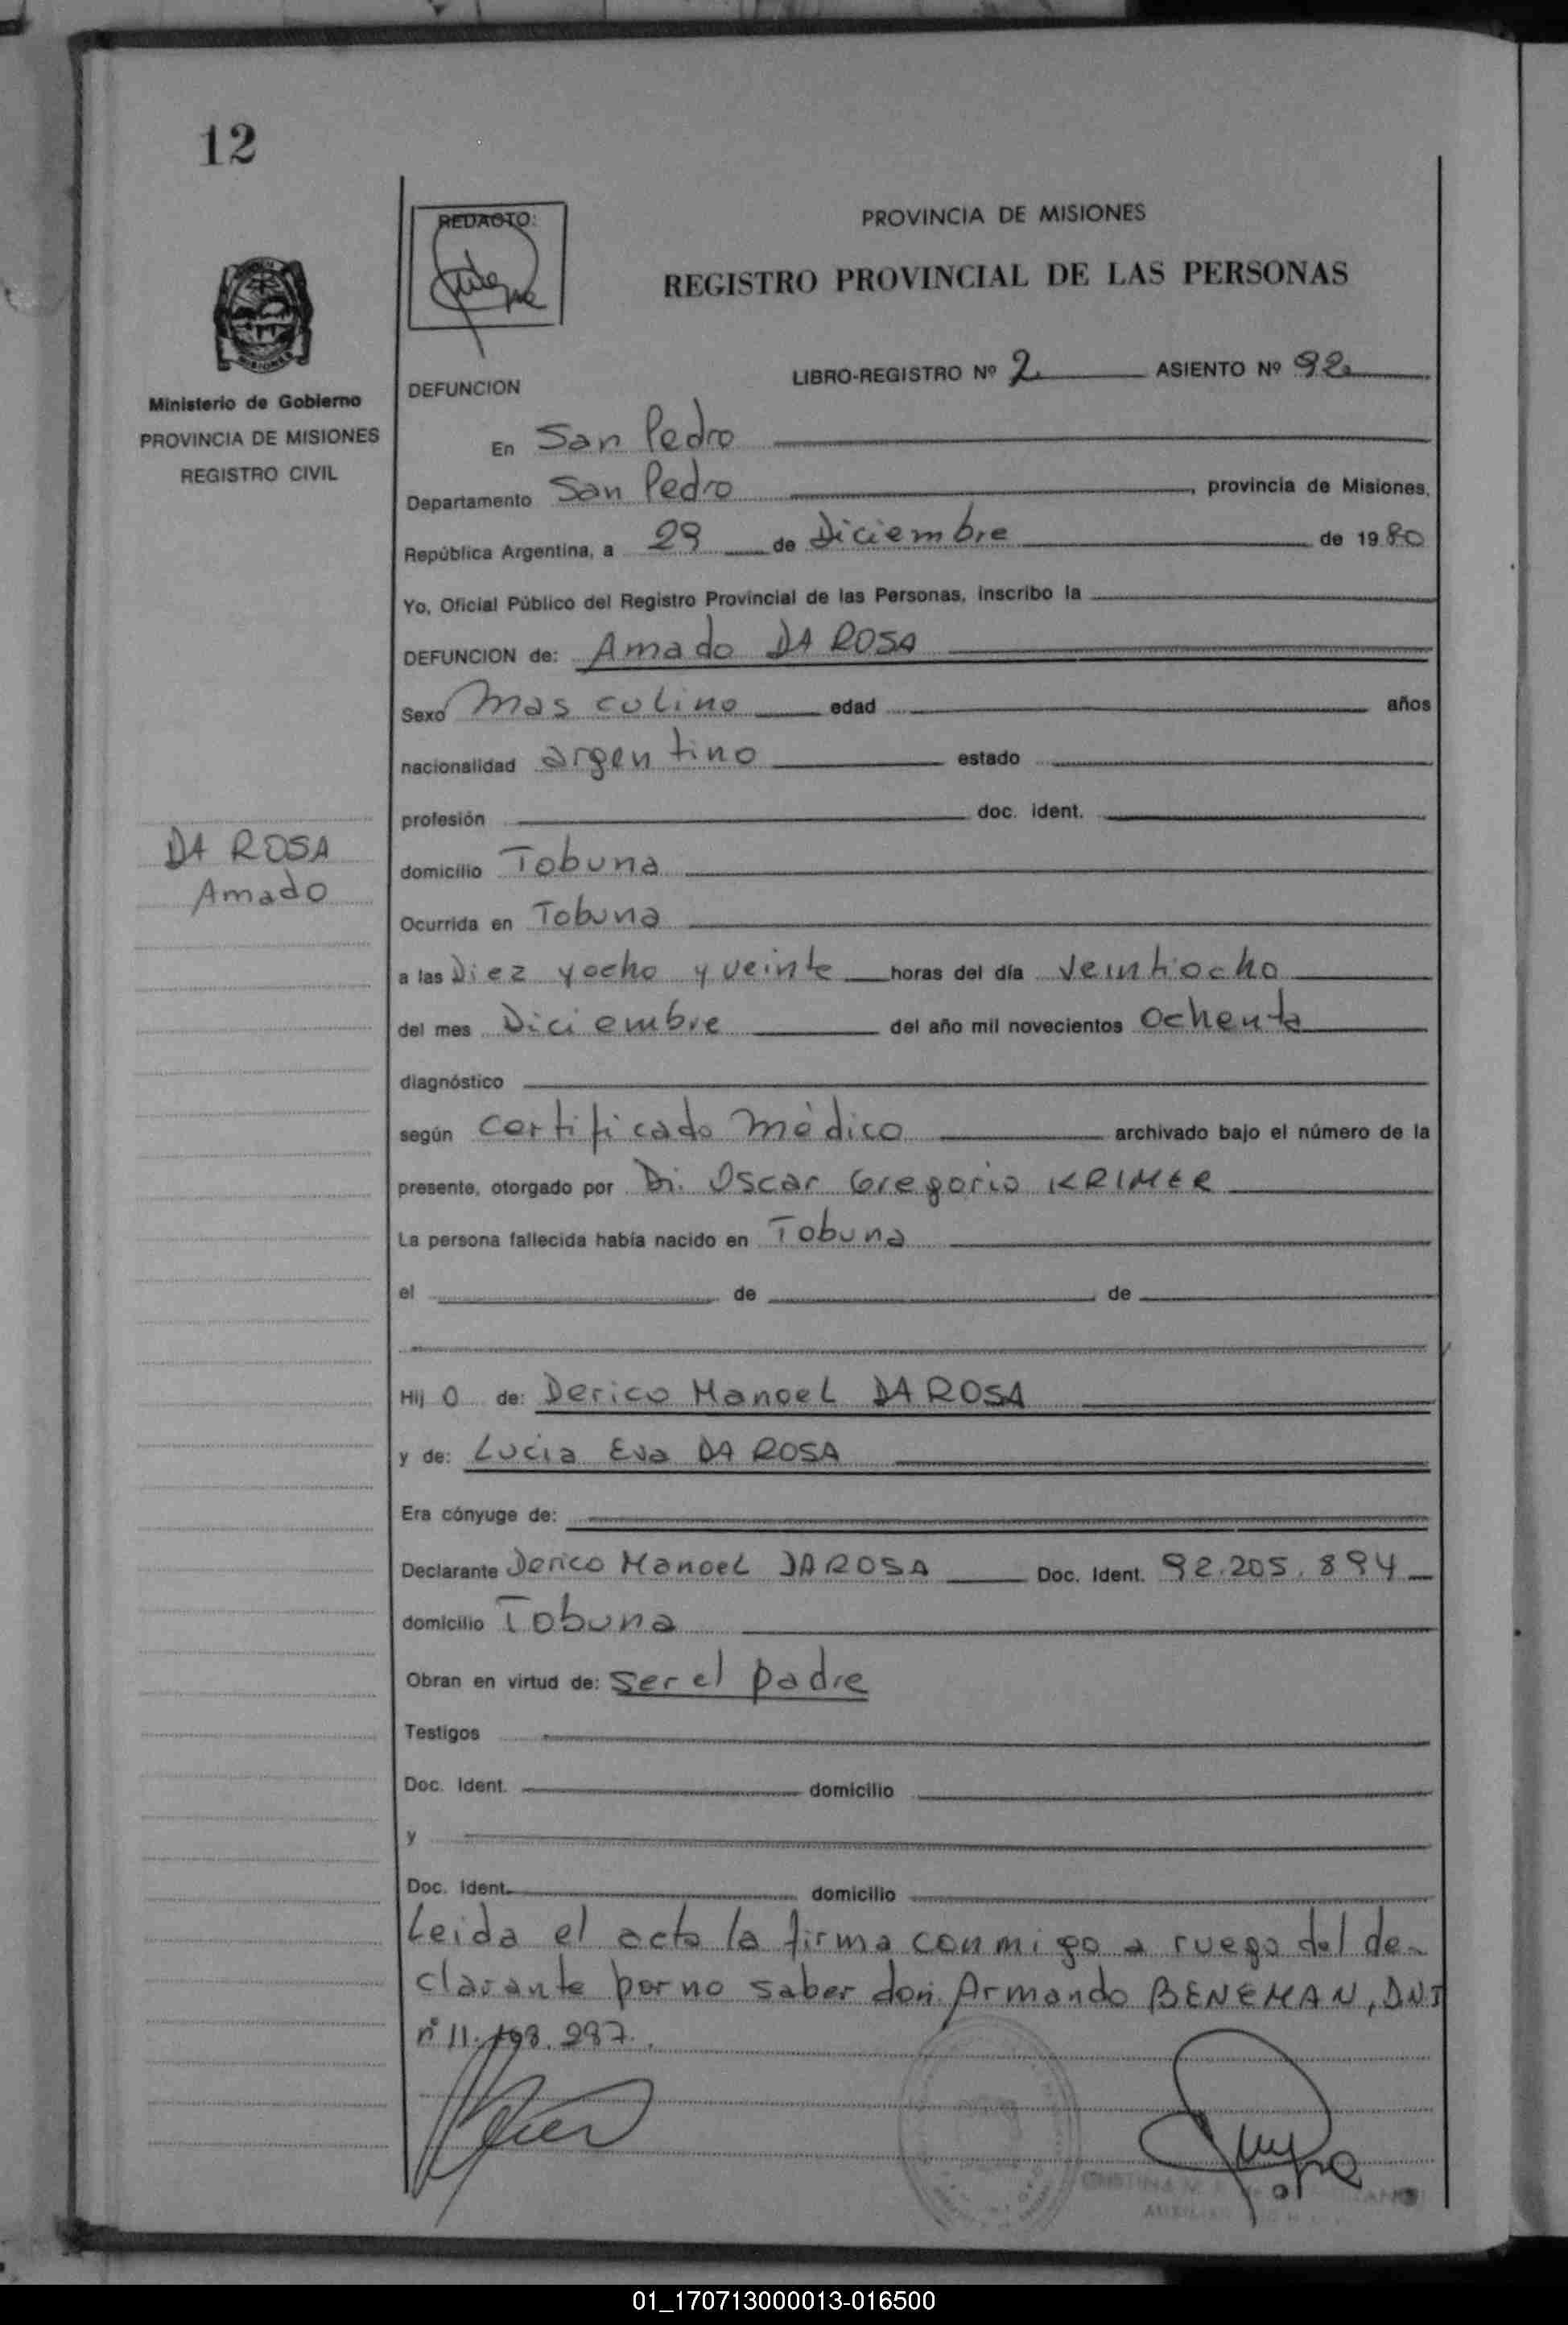 12
REDACTO:
PROVINCIA DE MISIONES
REGISTRO PROVINCIAL DE LAS PERSONAS
MISIONES
Ministerio de Gobierno
PROVINCIA DE MISIONES
REGISTRO CIVIL
LIBRO-REGISTRO Nº 2 ASIENTO Nº 92
DEFUNCION
En San Pedro
Departamento San Pedro, provincia de Misiones,
República Argentina, a 29 de Diciembre de 1980
Yo, Oficial Público del Registro Provincial de las Personas, inscribo la
DEFUNCION de: Amado DA ROSA
Sexo Masculino edad años
nacionalidad argentino estado
profesión doc. ident.
DA ROSA
Amado
domicilio Tobuna
Ocurrida en Tobuna
a las Diez y ocho y veinte horas del día veintiocho
del mes Diciembre del año mil novecientos ochenta
diagnóstico
según certificado médico archivado bajo el número de la
presente, otorgado por Dr. Oscar Gregorio KRIMER
La persona fallecida había nacido en Tobuna
el de de
Hij o de: Derico Manoel DA ROSA
y de: Lucia Eva DA ROSA
Era cónyuge de:
Declarante Derico Manoel DA ROSA Doc. Ident. 92.205.894
domicilio Tobuna
Obran en virtud de: ser el padre
Testigos
Doc. Ident. domicilio
y
Doc. Ident. domicilio
Leida el acta la firma conmigo a ruego del de-
clarante por no saber don Armando BENEMAN, DNI
nº 11.198.297.
01_170713000013-016500